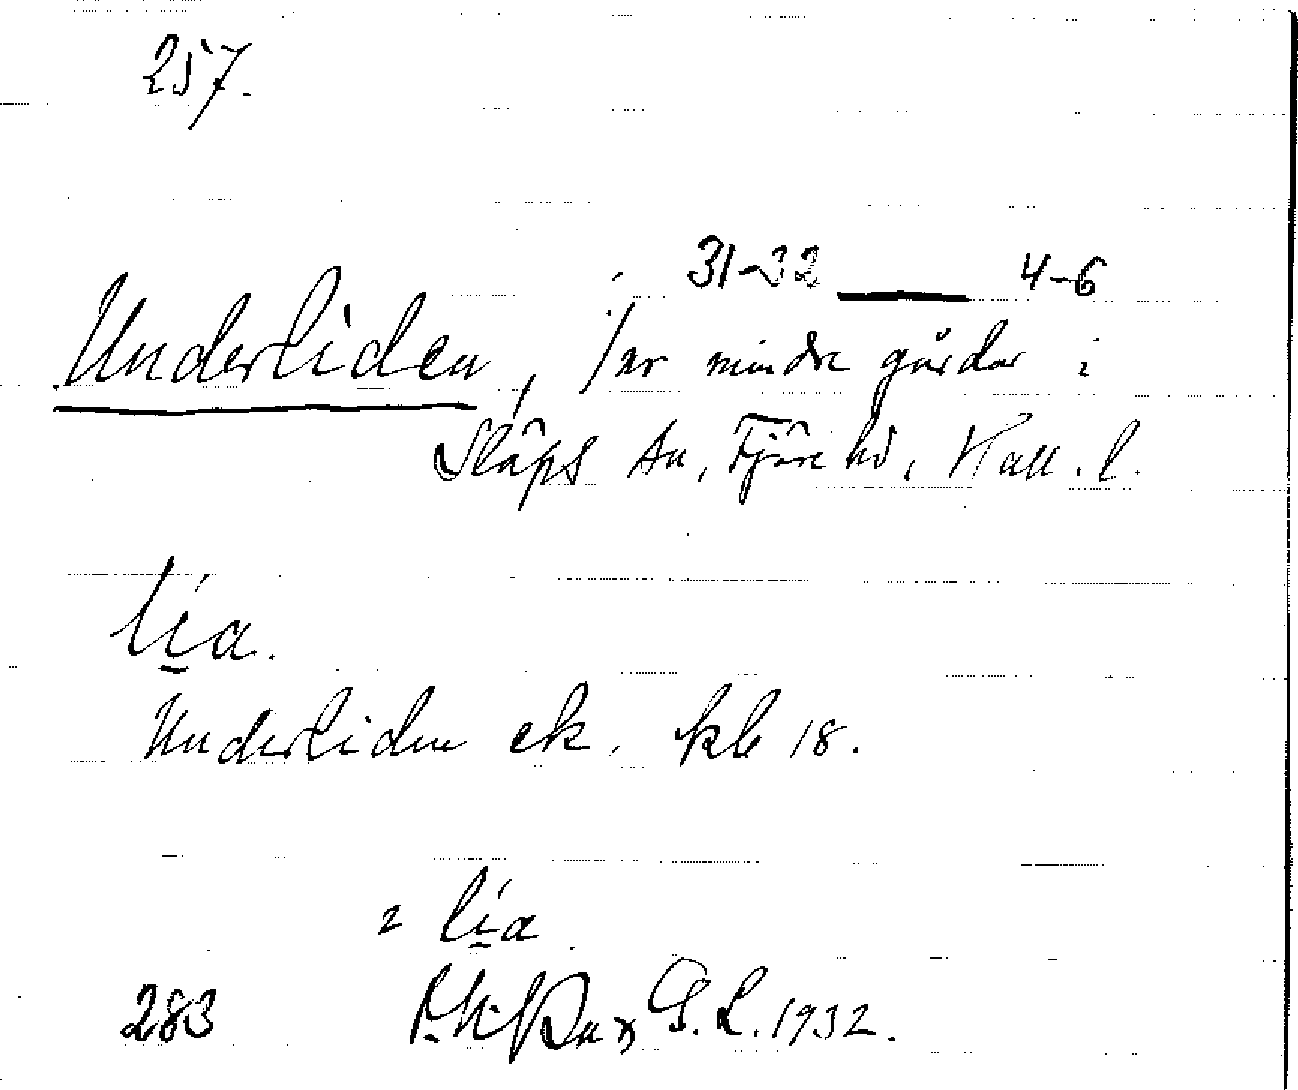 257.
31-32 — 4-6
Underliden, par mindre gårdar i
Släps sn, Fjäre hd, Hall. l.
lia.
Underliden ek. kb 18.
2 lia
283 G. L. 1932.